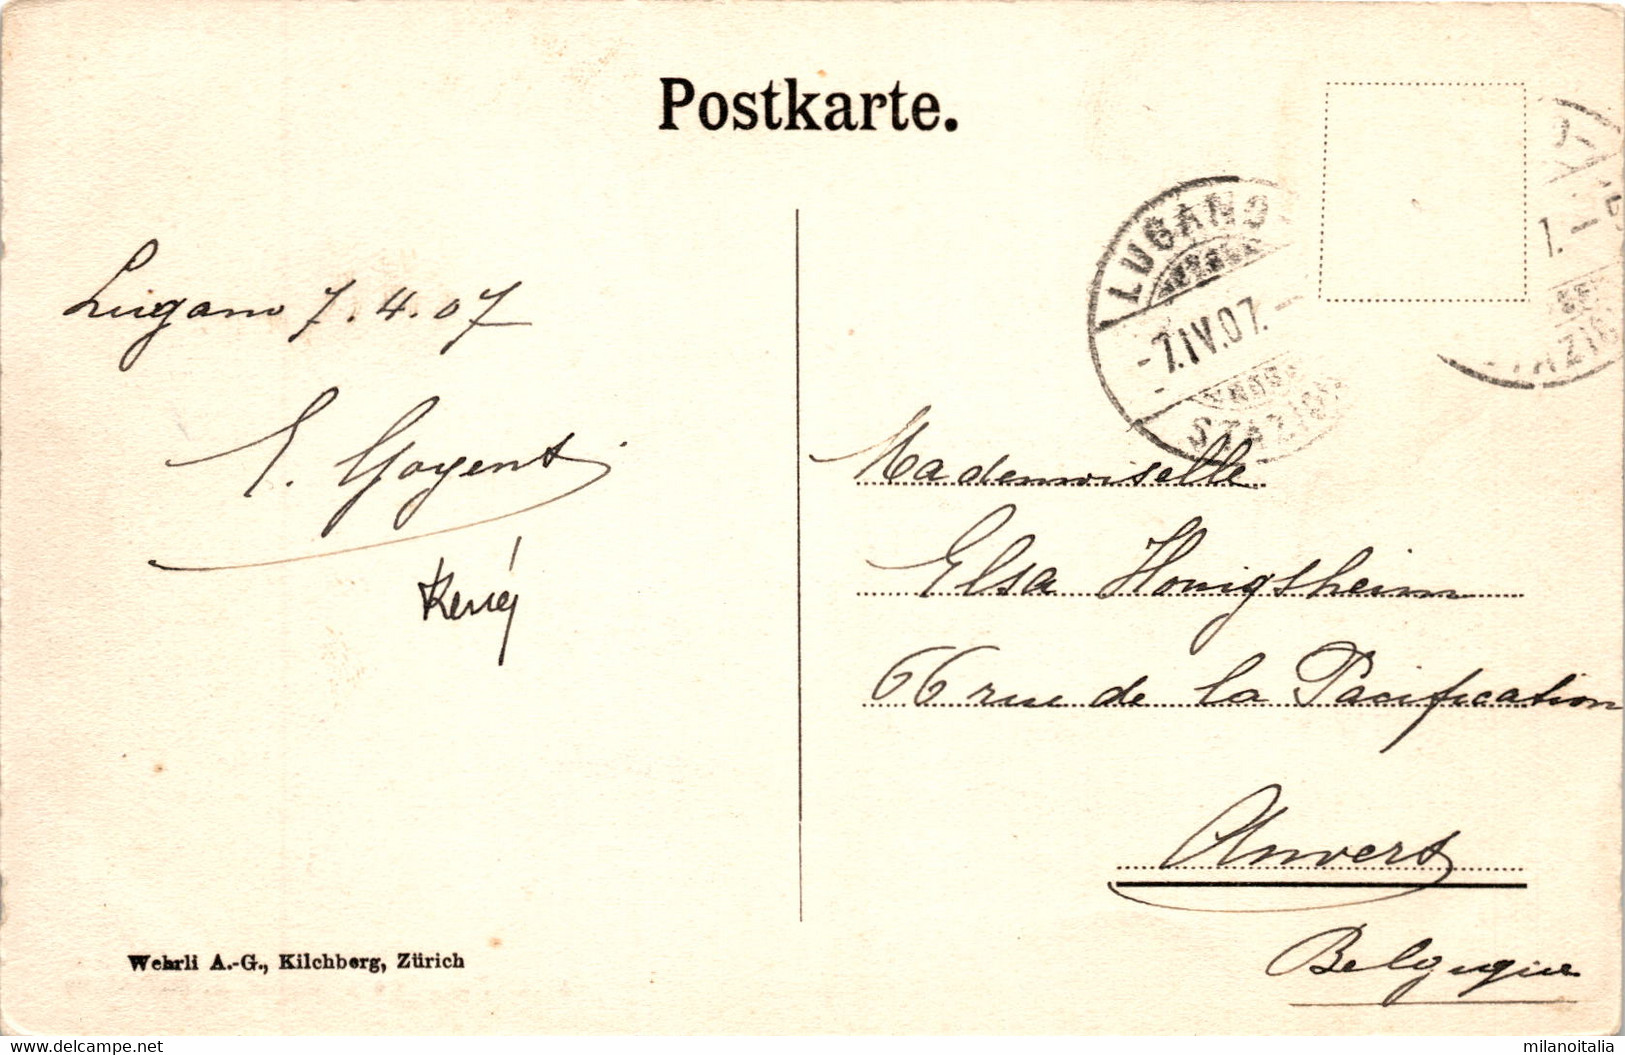 Postkarte.
LUGANO
-7.IV.07.-
STAZIO
1.-
STAZIO
Lugano 7.4.07
E. Goyens
René
Mademoiselle
Elsa Honigsheim
66 rue de la Pacification
Anvers
Belgique
Wehrli A.-G., Kilchberg, Zürich
www.delcampe.net
milanoitalia